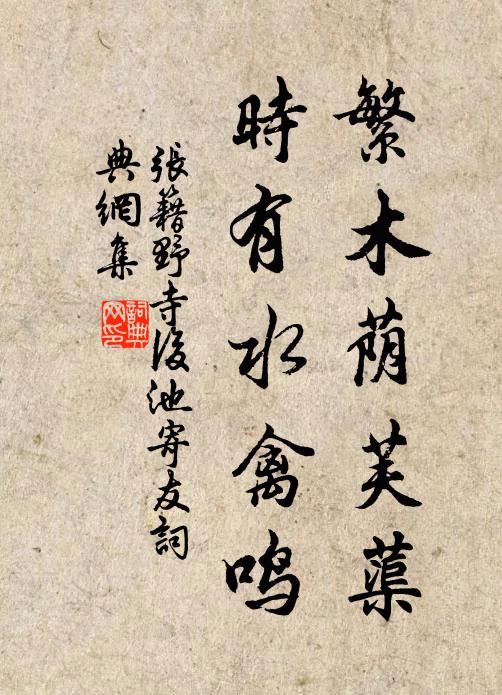 繁木荫芙蕖
時有水禽鸣
張籍野寺後池寄友詞
典網集
詞典
网印